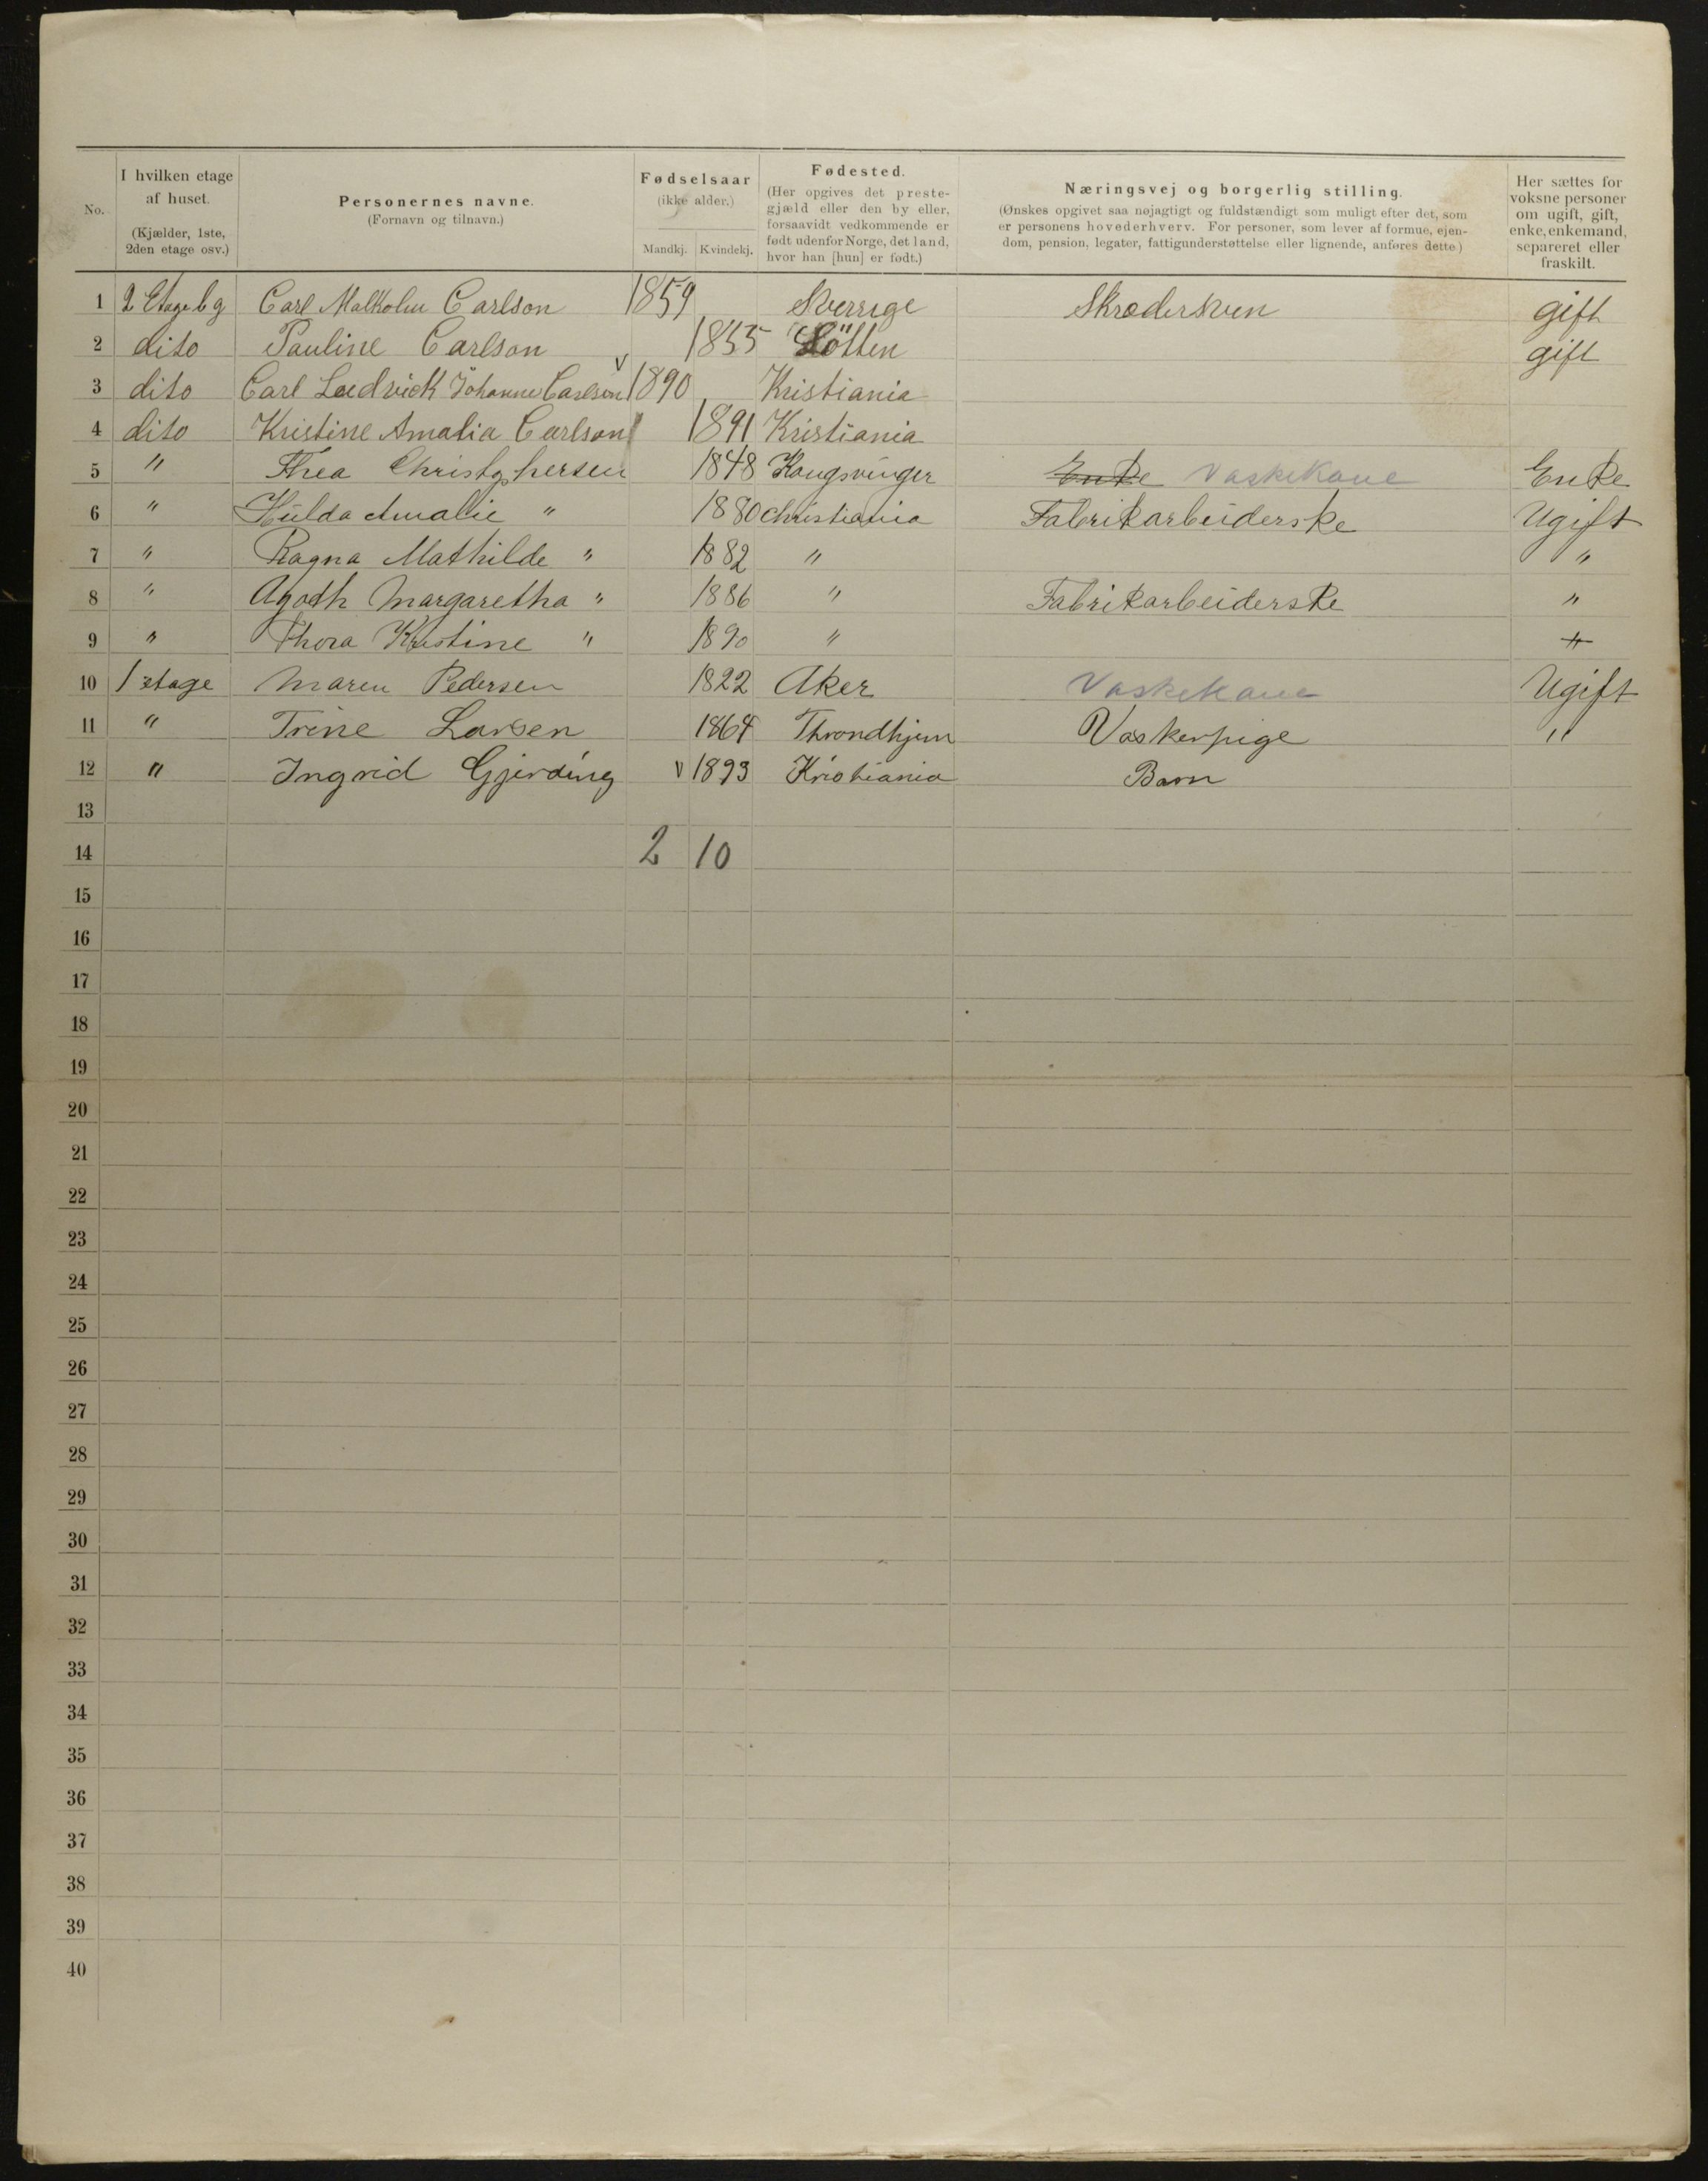 No. | I hvilken etage af huset. (Kjælder, 1ste, 2den etage osv.) | Personernes navne. (Fornavn og tilnavn.) | Fødselsaar (ikke alder.) Mandkj. Kvindekj. | Fødested. (Her opgives det prestegjæld eller den by eller, forsaavidt vedkommende er født udenfor Norge, det land, hvor han [hun] er født.) | Næringsvej og borgerlig stilling. (Ønskes opgivet saa nøjagtigt og fuldstændigt som muligt efter det, som er personens hovederhverv. For personer, som lever af formue, ejendom, pension, legater, fattigunderstøttelse eller lignende, anføres dette) | Her sættes for voksne personer om ugift, gift, enke, enkemand, separeret eller fraskilt.
1 2 Etage b g Carl Malkolm Carlson 1859 Sverrige Skrædersven gift
2 dito Pauline Carlson 1855 Lötten gift
3 dito Carl Ludvick Johanne Carlson 1890 Kristiania
4 dito Kristine Amalia Carlson 1891 Kristiania
5 " Thea Christophersen 1848 Kongsvinger Enke Vaskekone Enke
6 " Hulda Amalie " 1880 Christiania Fabrikarbeiderske Ugift
7 " Ragna Mathilde " 1882 " "
8 " Agoth Margaretha " 1886 " Fabrikarbeiderske "
9 " Thora Kristine " 1890 " "
10 1 etage Maren Pedersen 1822 Aker Vaskekone Ugift
11 " Trine Larsen 1864 Throndhjem Vaskerpige "
12 " Ingrid Gjerding v 1893 Kristiania Barn
13
14 2 10
15
16
17
18
19
20
21
22
23
24
25
26
27
28
29
30
31
32
33
34
35
36
37
38
39
40